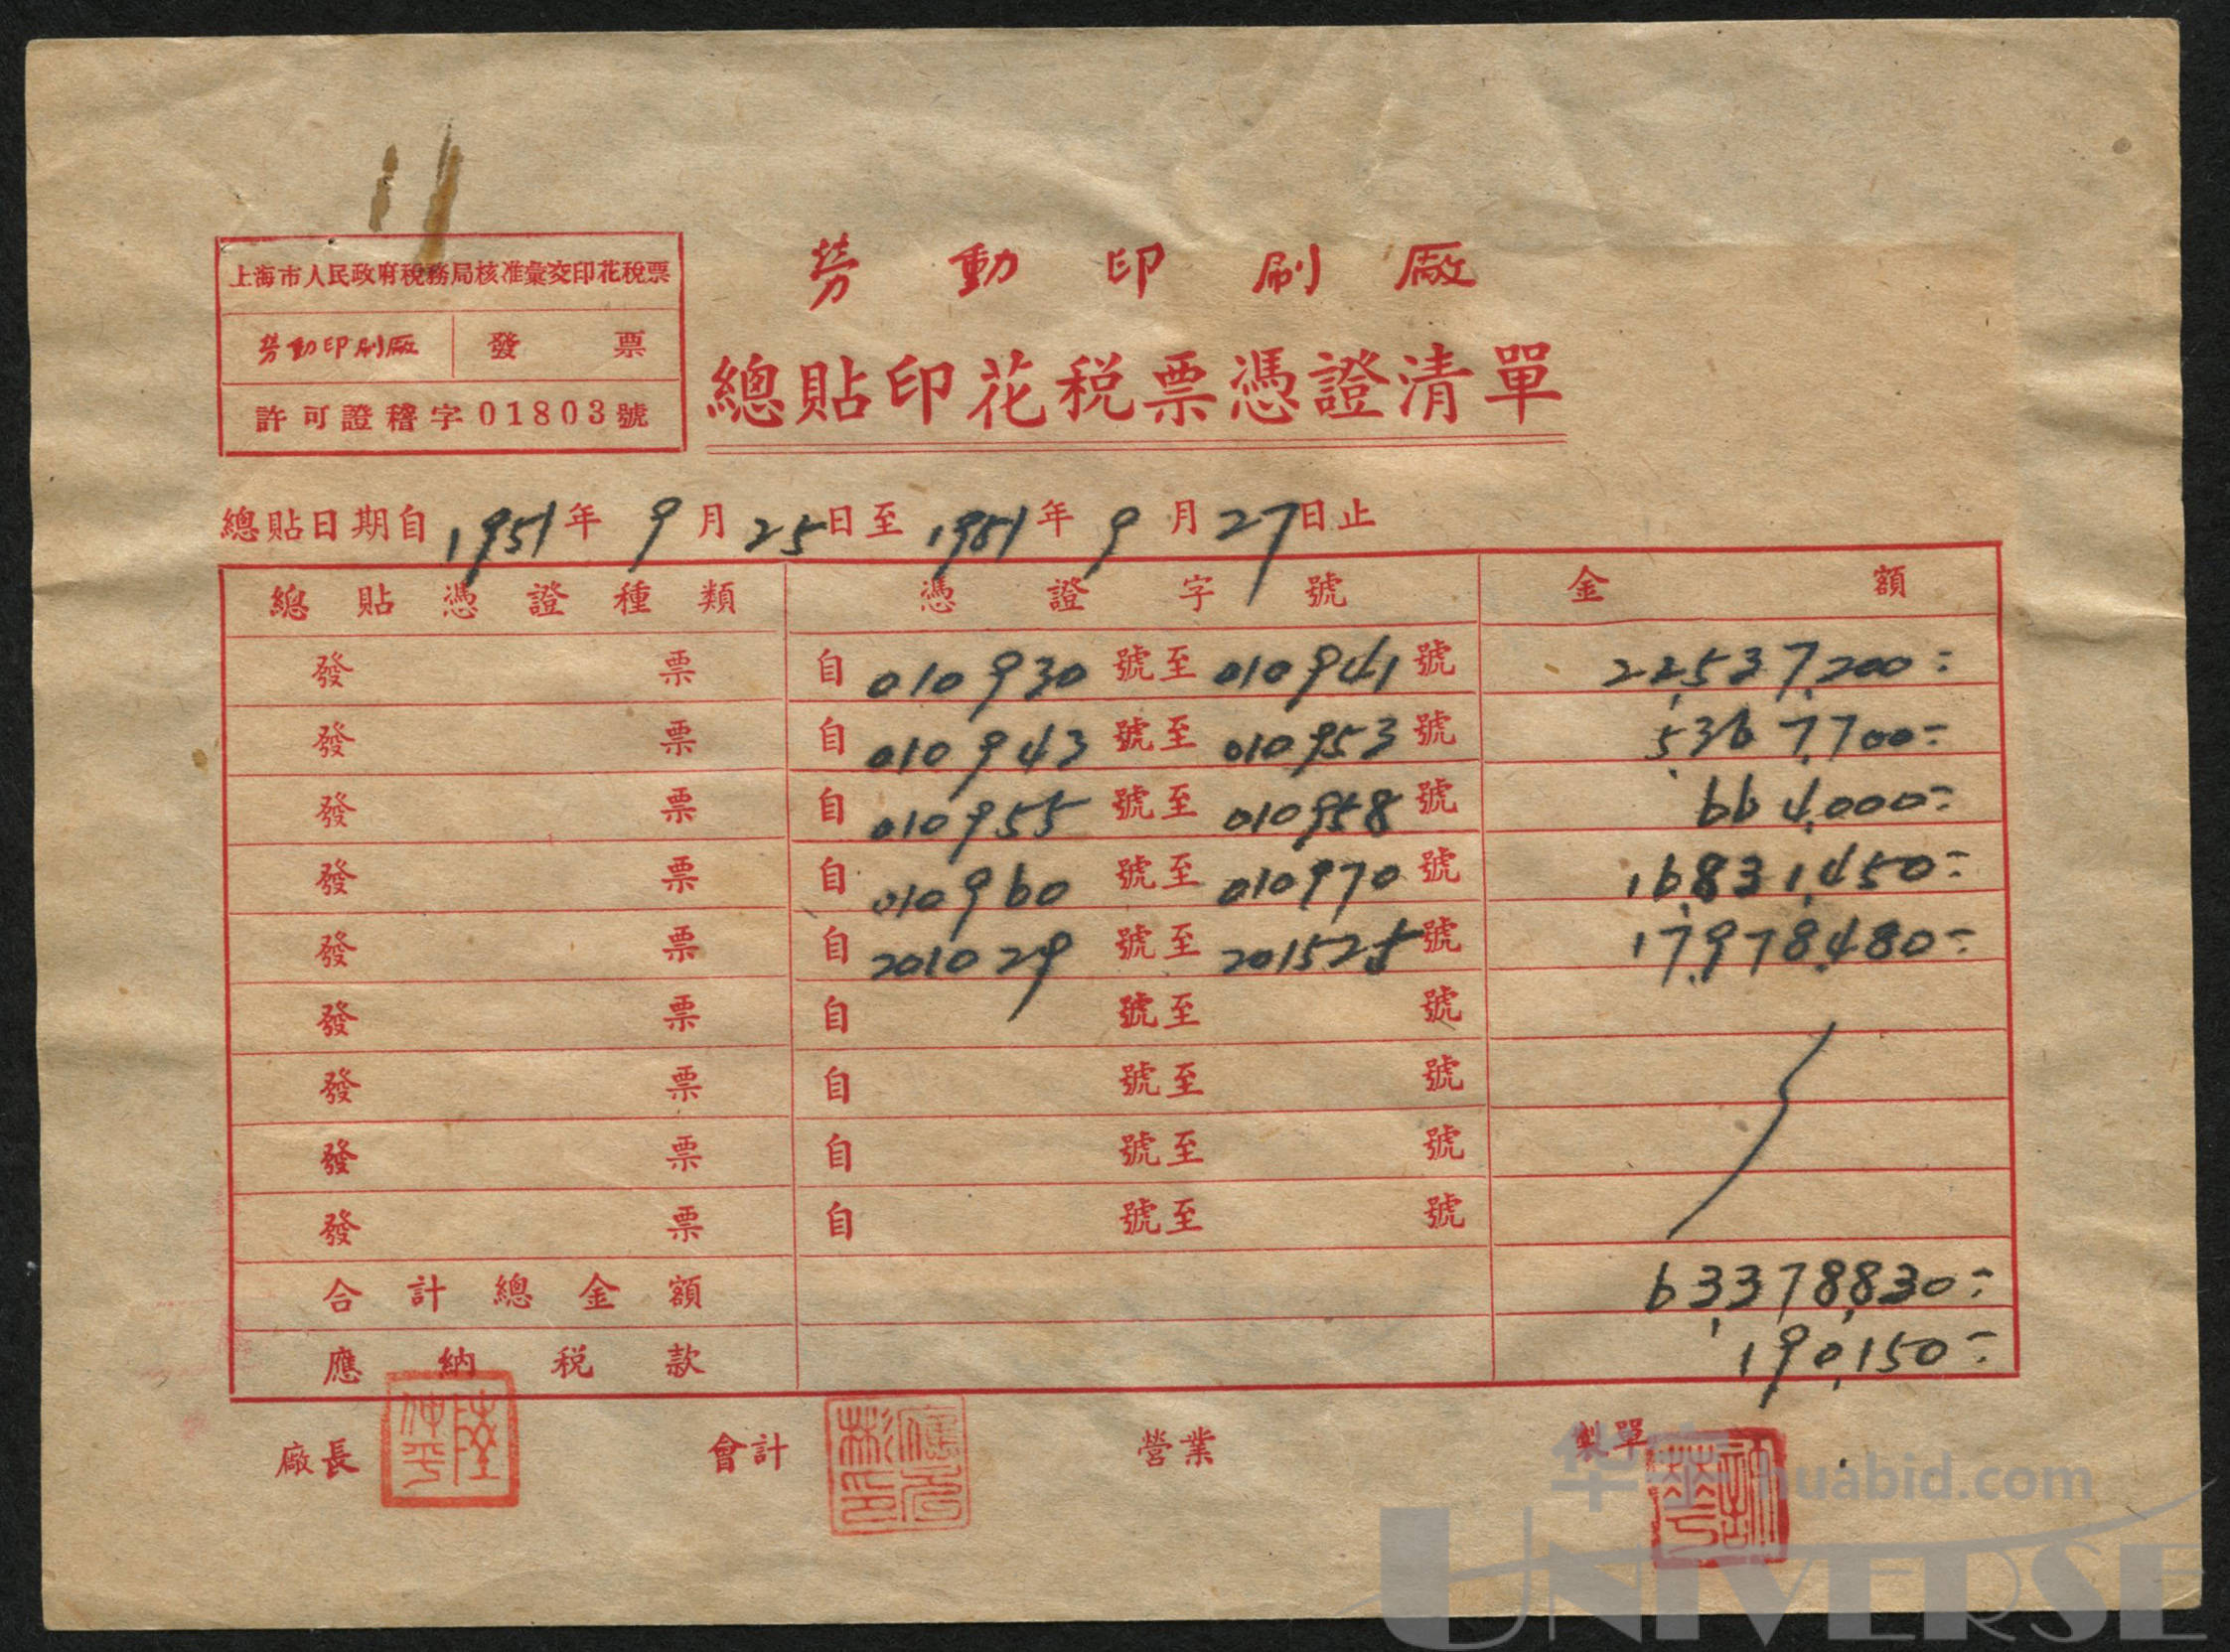 上海市人民政府稅務局核准彙交印花稅票
勞動印刷厰 發票
許可證稽字01803號
勞動印刷厰
總貼印花税票憑證清單
總貼日期自1951年9月25日至1951年9月27日止
總貼憑證種類 憑證字號 金額
發票 自010930號至010941號 22,537,200-
發票 自010943號至010953號 5,367,700-
發票 自010955號至010958號 664,000-
發票 自010960號至010970號 16,831,450-
發票 自201029號至201525號 17,978,480-
發票 自 號至 號
發票 自 號至 號
發票 自 號至 號
發票 自 號至 號
合計總金額 63,378,830-
應納税款 190,150-
廠長 陸仲平 會計 營業 製單
huabid.com
UNIVERSE